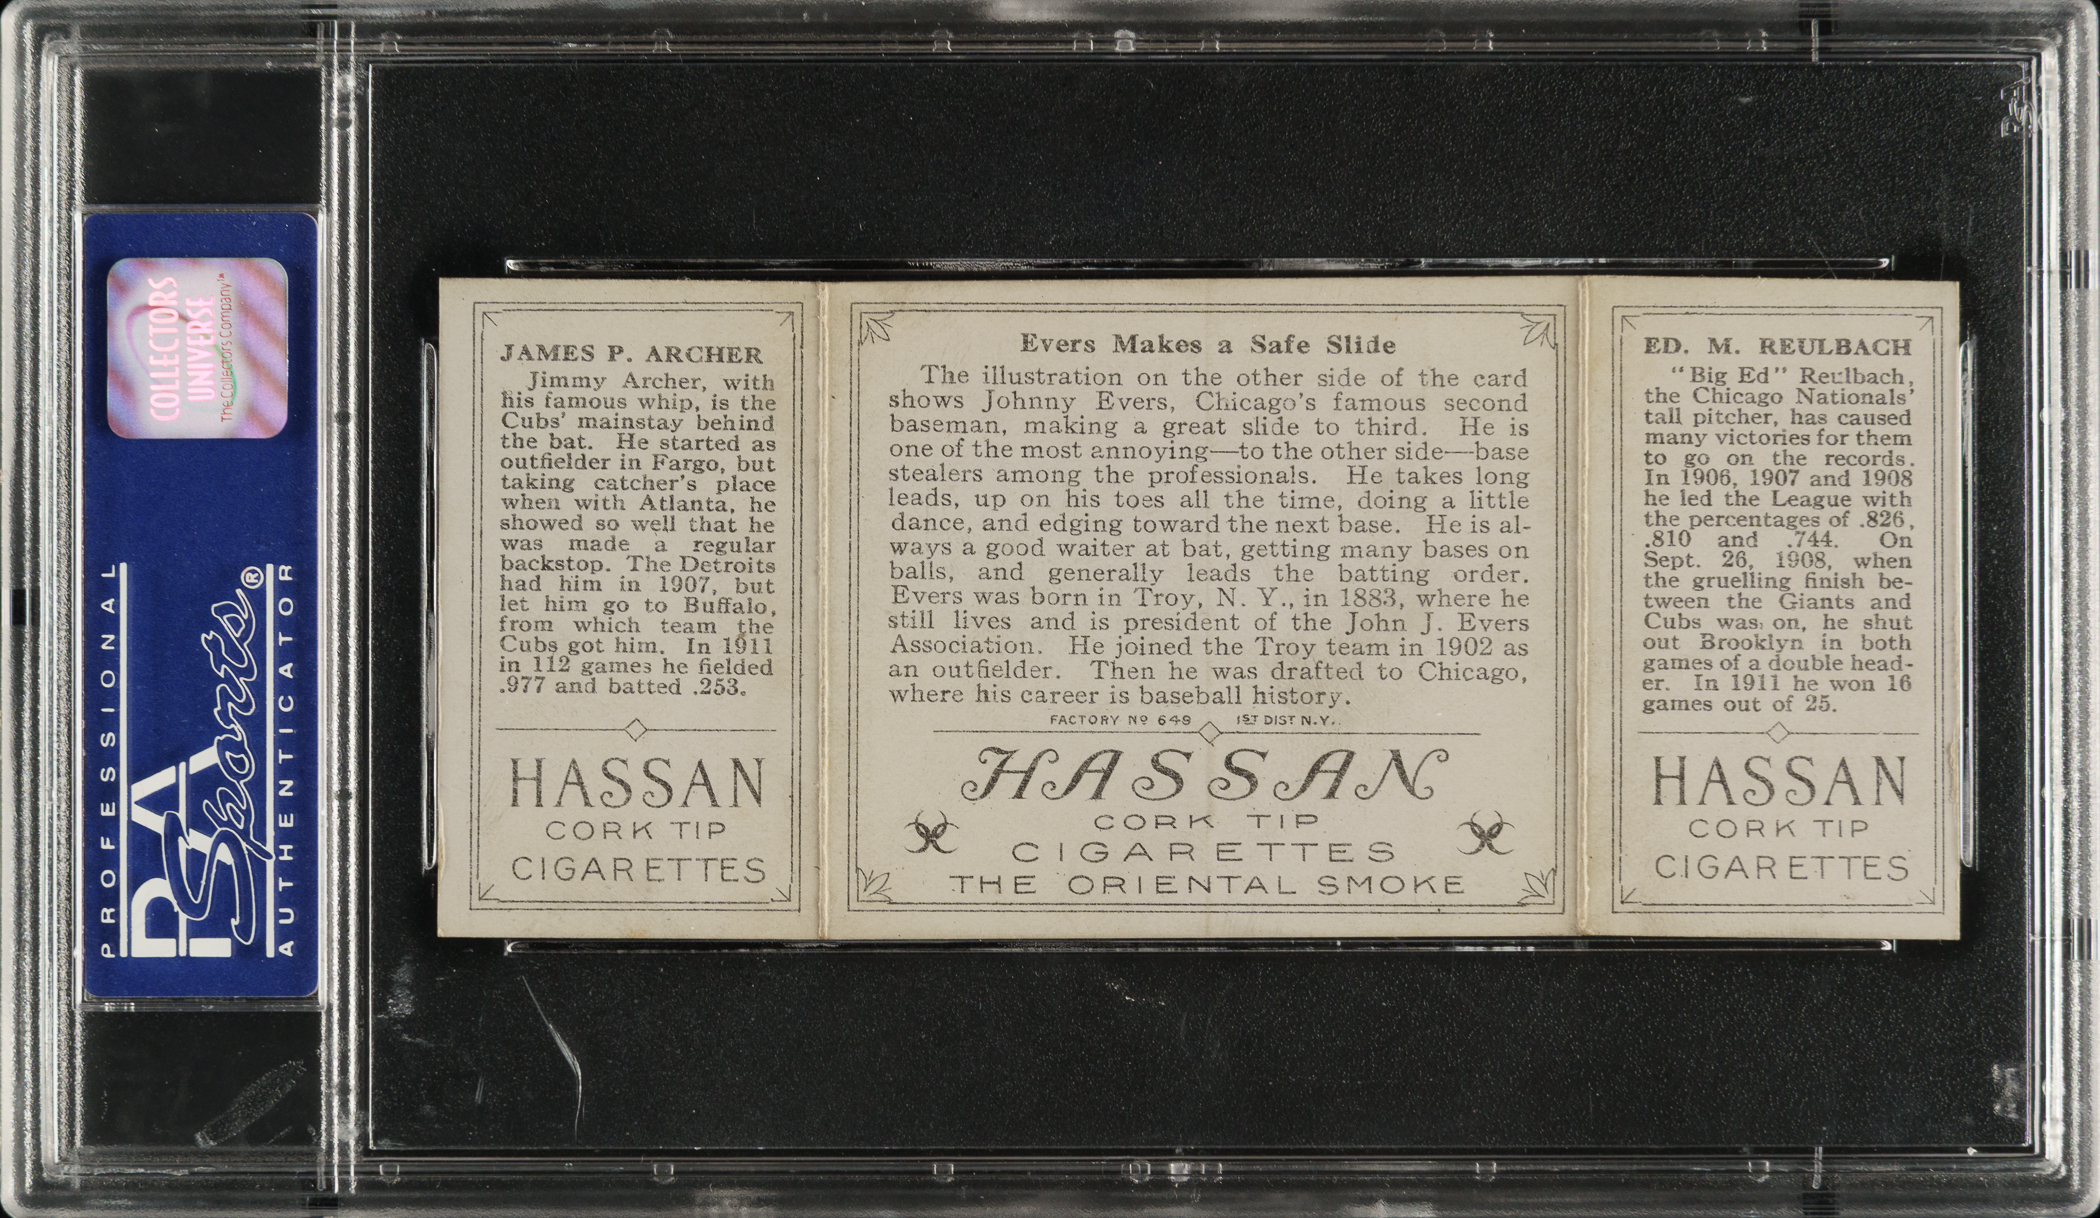 COLLECTORS
UNIVERSE
The Collectors Company™
PROFESSIONAL
PSA
Sports®
AUTHENTICATOR
JAMES P. ARCHER
Jimmy Archer, with
his famous whip, is the
Cubs' mainstay behind
the bat. He started as
outfielder in Fargo, but
taking catcher's place
when with Atlanta, he
showed so well that he
was made a regular
backstop. The Detroits
had him in 1907, but
let him go to Buffalo,
from which team the
Cubs got him. In 1911
in 112 games he fielded
.977 and batted .253.
HASSAN
CORK TIP
CIGARETTES
Evers Makes a Safe Slide
The illustration on the other side of the card
shows Johnny Evers, Chicago's famous second
baseman, making a great slide to third. He is
one of the most annoying—to the other side—base
stealers among the professionals. He takes long
leads, up on his toes all the time, doing a little
dance, and edging toward the next base. He is al-
ways a good waiter at bat, getting many bases on
balls, and generally leads the batting order.
Evers was born in Troy, N. Y., in 1883, where he
still lives and is president of the John J. Evers
Association. He joined the Troy team in 1902 as
an outfielder. Then he was drafted to Chicago,
where his career is baseball history.
FACTORY Nº 649 1ST DIST N.Y.
HASSAN
CORK TIP
CIGARETTES
THE ORIENTAL SMOKE
ED. M. REULBACH
"Big Ed" Reulbach,
the Chicago Nationals'
tall pitcher, has caused
many victories for them
to go on the records.
In 1906, 1907 and 1908
he led the League with
the percentages of .826,
.810 and .744. On
Sept. 26, 1908, when
the gruelling finish be-
tween the Giants and
Cubs was on, he shut
out Brooklyn in both
games of a double head-
er. In 1911 he won 16
games out of 25.
HASSAN
CORK TIP
CIGARETTES